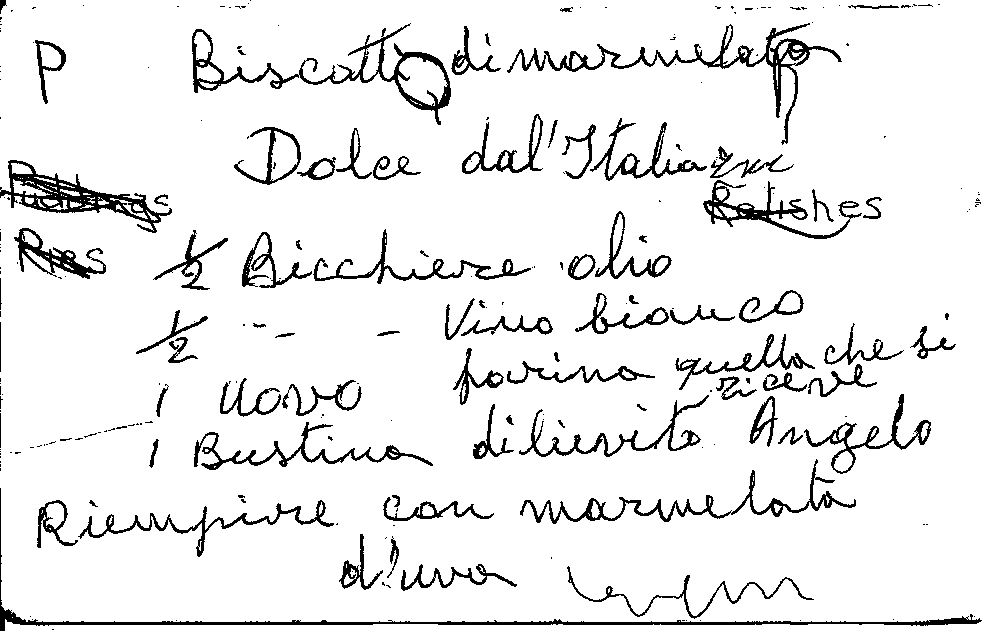 P Biscotti di marmelata
Dolce dal'Italia
Puddings
Relishes
Pies
1/2 Bicchiere olio
1/2 " - - Vino bianco
1 Uovo farina quella che si
riceve
1 Bustina di lievito Angelo
Riempire con marmelata
d'uva